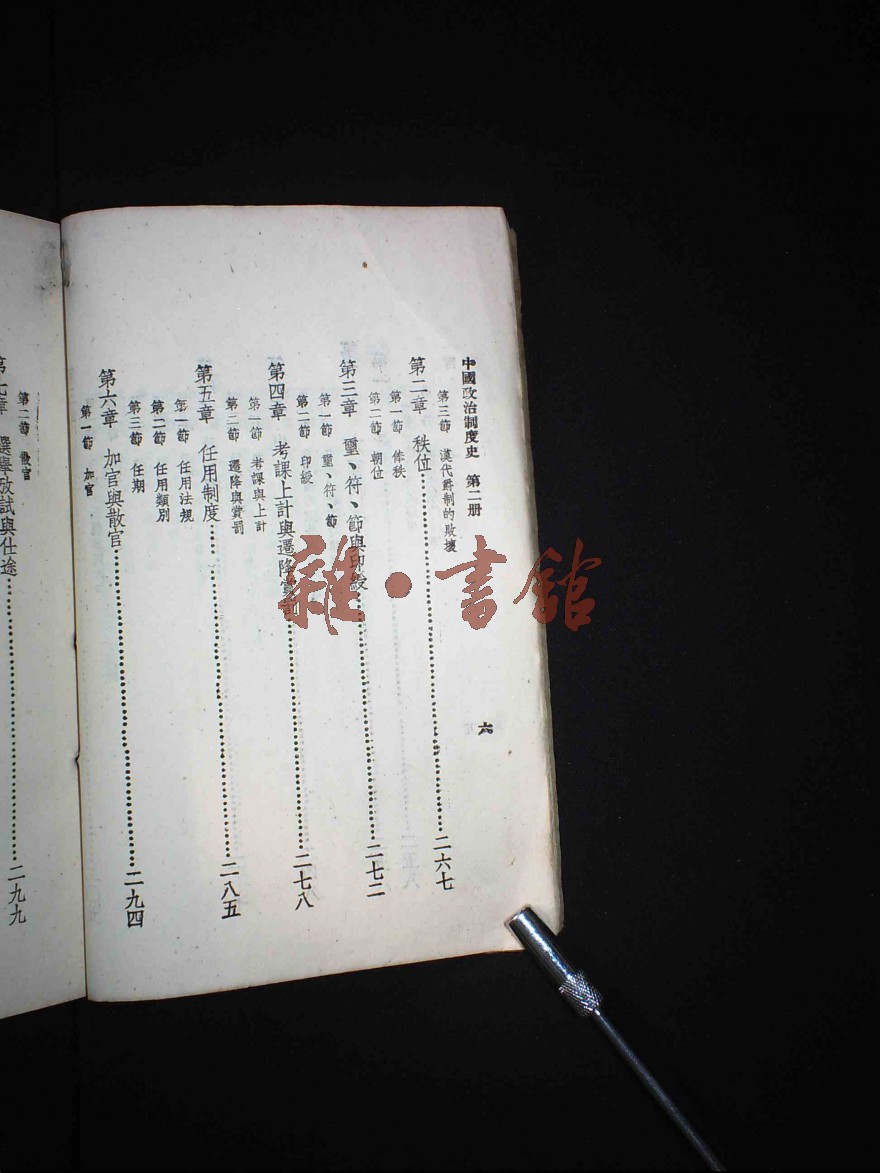 中國政治制度史　第二册
六
第三節　漢代爵制的敗壞
第二章　秩位……二六七
第一節　俸秩
第二節　朝位
第三章　璽、符、節與印綬……二七二
第一節　璽、符、節
第二節　印綬
第四章　考課上計與遷降賞罰……二七八
第一節　考課與上計
第二節　遷降與賞罰
第五章　任用制度……二八五
第一節　任用法規
第二節　任用類別
第三節　任期
第六章　加官與散官……二九四
第一節　加官
第二節　散官
第七章　選舉攷試與仕途……二九九
雜·書館